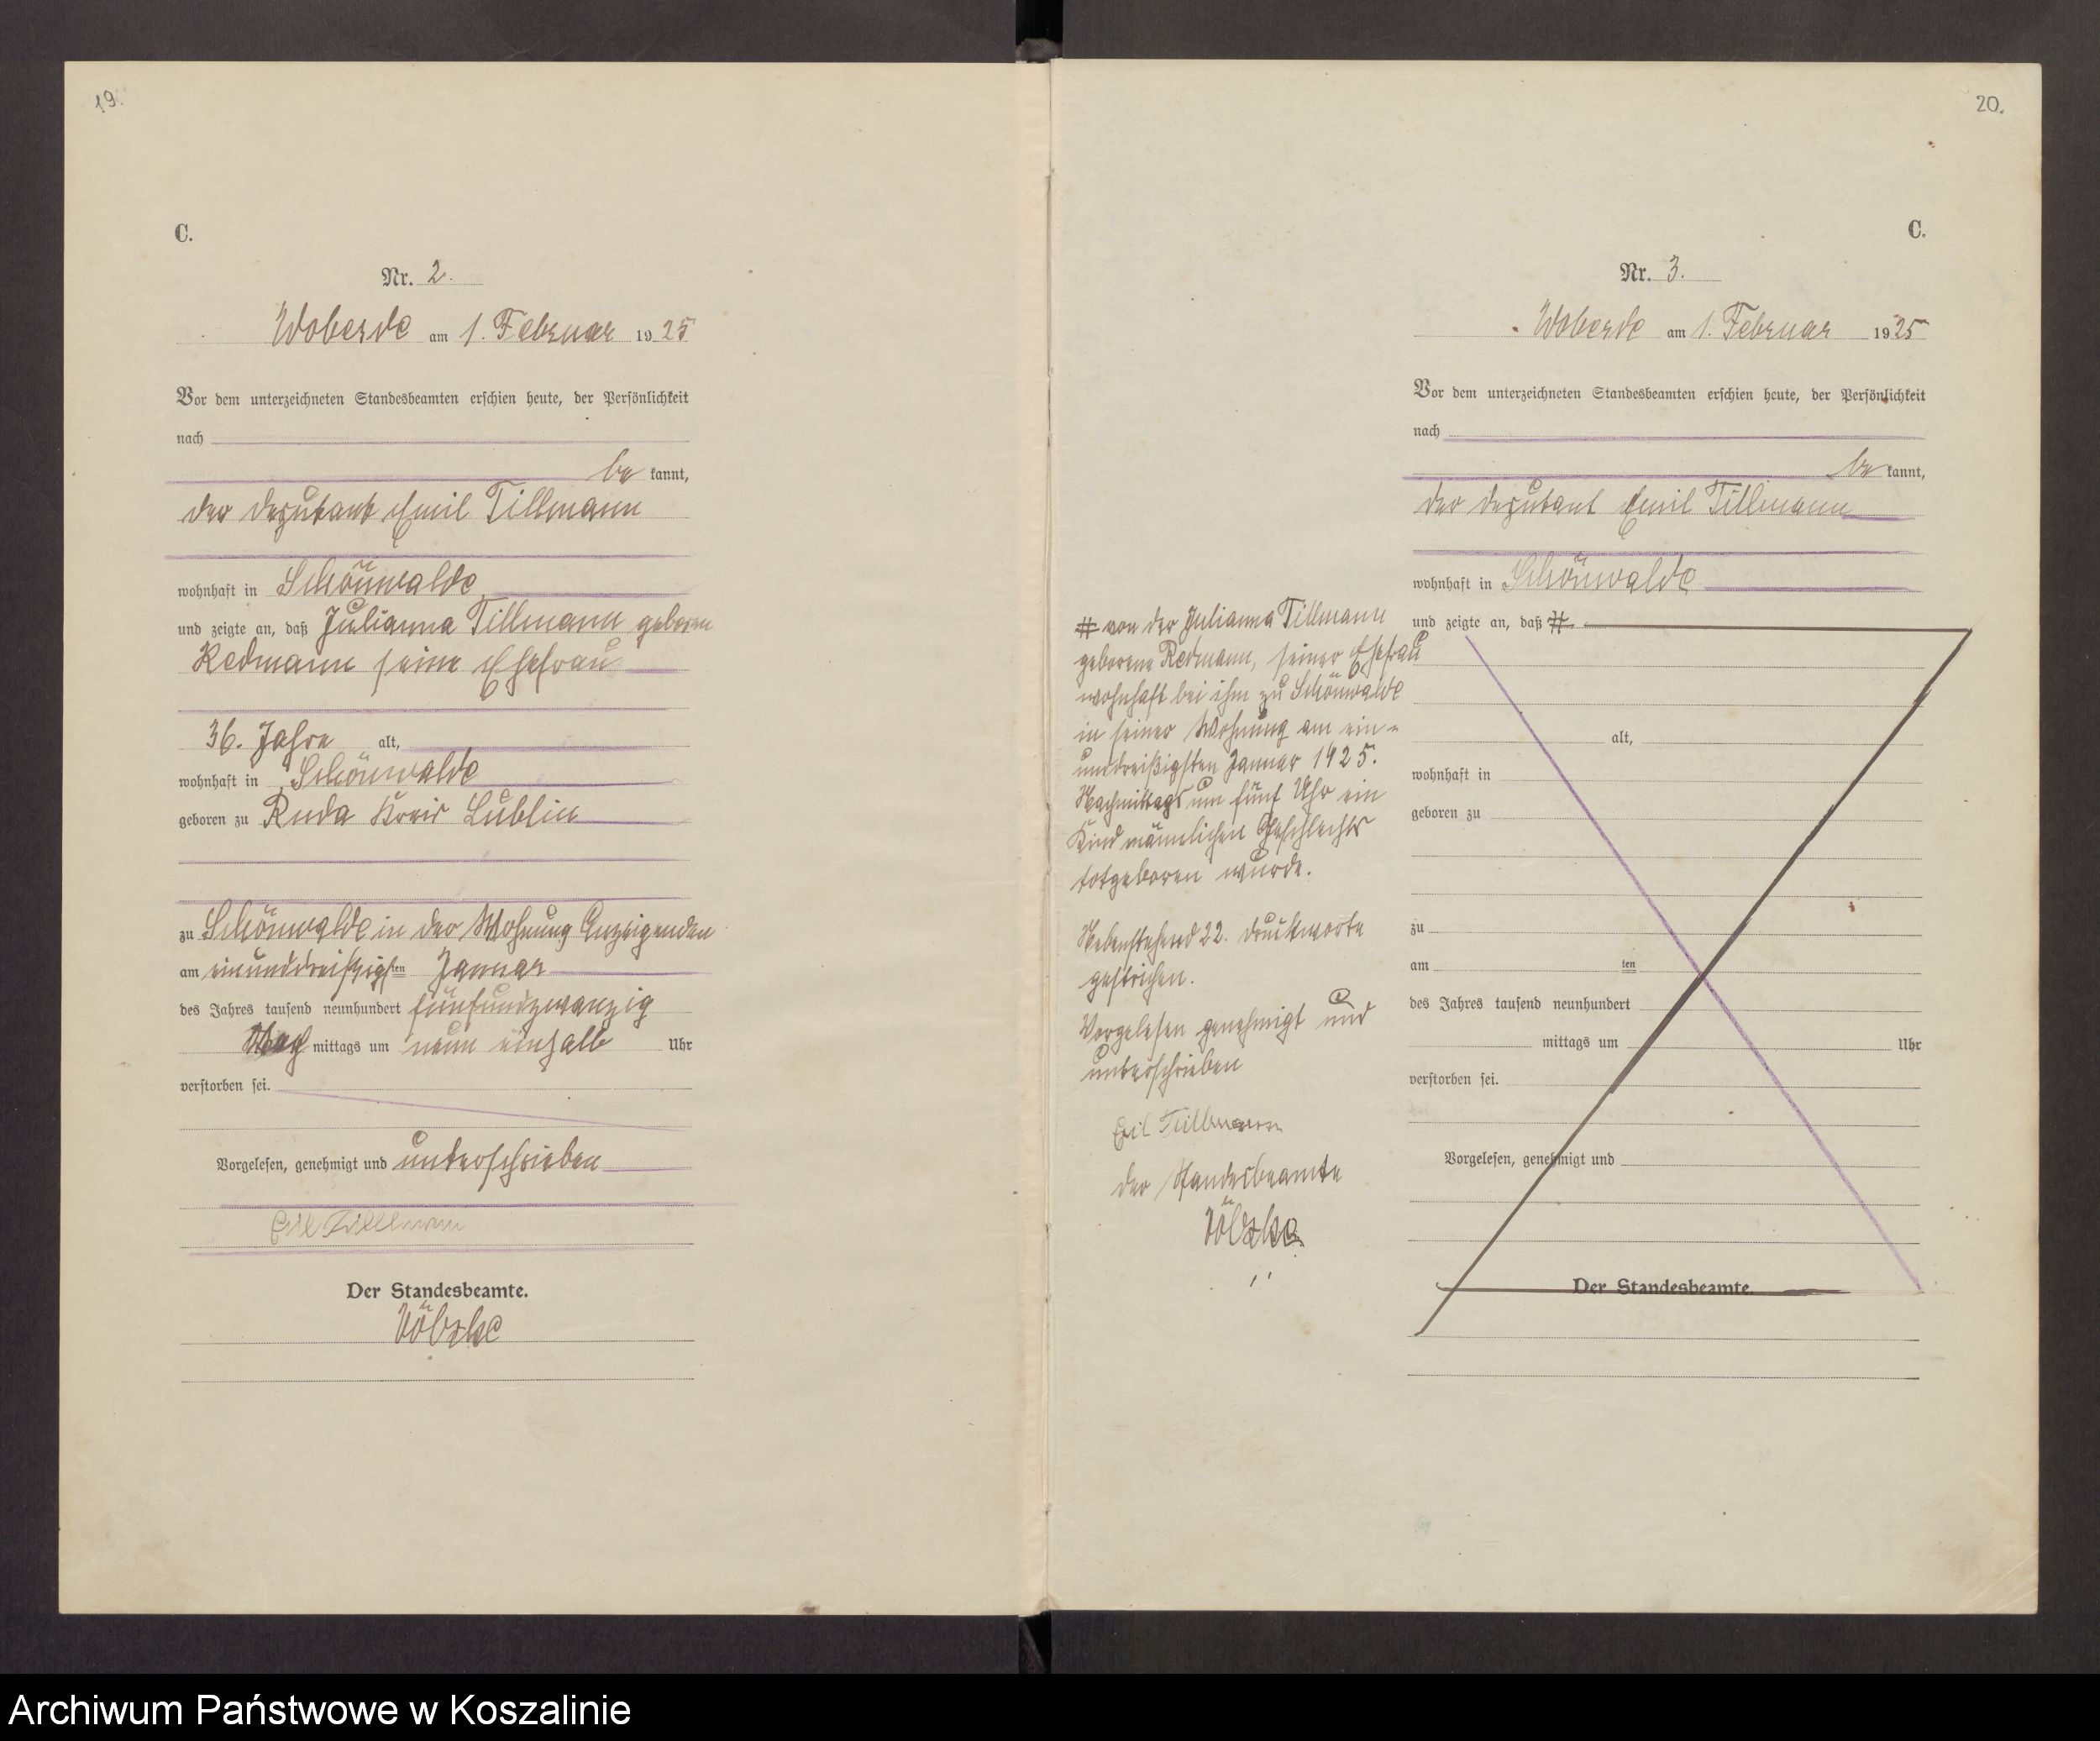 19.
C.
Nr. 2.
Woberde am 1. Februar 1925
Vor dem unterzeichneten Standesbeamten erschien heute, der Persönlichkeit
nach
be kannt,
der Deputant Emil Tillmann
wohnhaft in Schönwalde
und zeigte an, daß Julianna Tillmann geboren
Redmann seine Ehefrau
36. Jahre alt,
wohnhaft in Schönwalde
geboren zu Ruda Kreis Lublin
zu Schönwalde in der Wohnung Anzeigenden
am einunddreißigsten Januar
des Jahres tausend neunhundert fünfundzwanzig
Nach mittags um neun einhalb Uhr
verstorben sei.
Vorgelesen, genehmigt und unterschrieben
Emil Tillmann
Der Standesbeamte.
20.
C.
Nr. 3.
Woberde am 1. Februar 1925
Vor dem unterzeichneten Standesbeamten erschien heute, der Persönlichkeit
nach
be kannt,
der Deputant Emil Tillmann
wohnhaft in Schönwalde
und zeigte an, daß #
alt,
wohnhaft in
geboren zu
zu
am ten
des Jahres tausend neunhundert
mittags um Uhr
verstorben sei.
Vorgelesen, genehmigt und
Der Standesbeamte.
# von der Julianna Tillmann
geborene Redmann, seiner Ehefrau
wohnhaft bei ihm zu Schönwalde
in seiner Wohnung am ein-
unddreißigsten Januar 1925.
Nachmittags um fünf Uhr ein
Kind männlichen Geschlechts
totgeboren wurde.
Nebenstehend 22. Druckworte
gestrichen.
Vorgelesen genehmigt und
unterschrieben
Emil Tillmann
Der Standesbeamte
Archiwum Państwowe w Koszalinie